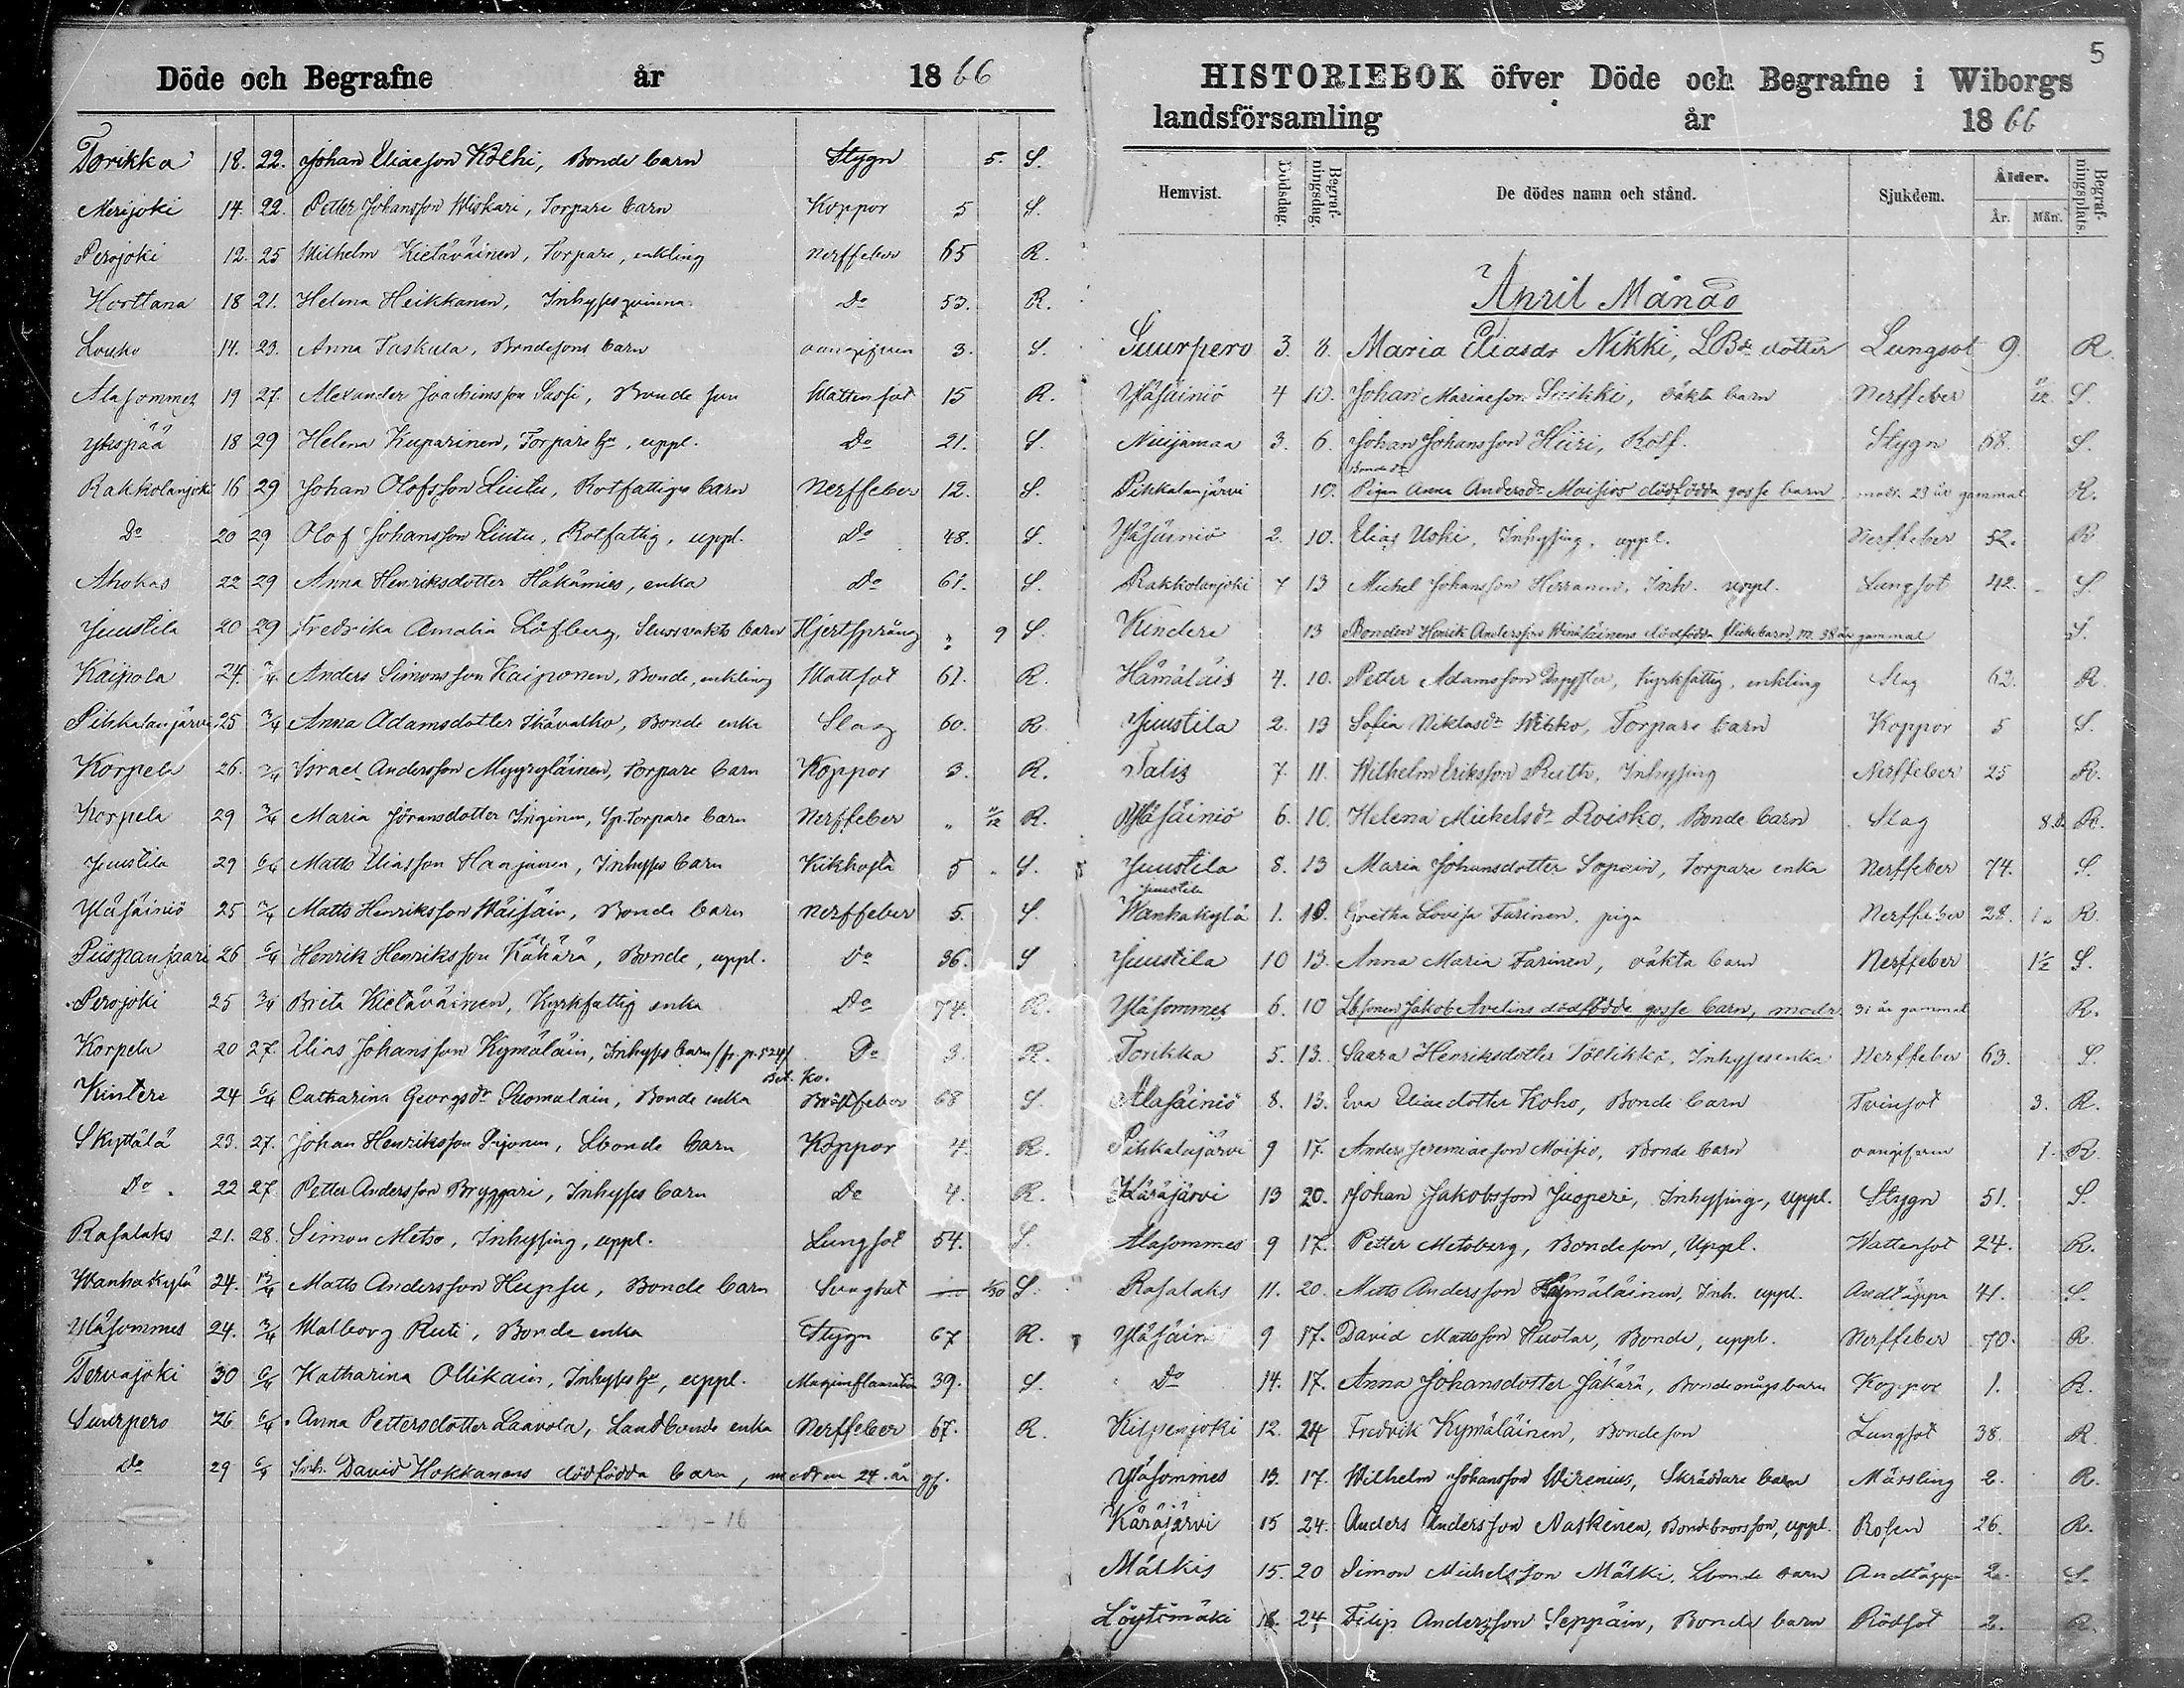 Döde och Begrafne år 1866
Torikka 18. 22. Johan Eliasson Kolhi, Bonde barn Stygn 5. S.
Merijoki 14. 22. Petter Johansson Wiskari, Torpare barn Koppor 5 S.
Perojoki 12. 25 Wilhelm Kietäväinen, Torpare, enkling Nerffeber 65 R.
Horttana 18 21. Helena Heikkanen, Inhyses qvinna Do 53. R.
Lousko 14. 23. Anna Taskula, Bondesons barn oangifven 3. S.
Alasommes 19 27. Alexander Joachimsson Sassi, Bonde son Wattensot 15 R.
Ykspää 18 29 Helena Kuparinen, Torpare hu, uppl. Do 21. S.
Rakkolanjoki 16 29 Johan Olofsson Liutu, Rotfattiges barn Nerffeber 12. S.
Do 20 29 Olof Johansson Liutu, Rotfattig, uppl. Do 48. S.
Ahokas 22 29 Anna Henriksdotter Häkämies, enka Do 61. S.
Juustila 20 29 Fredrika Amalia Löfberg, Slussvakts barn Hjertsprång " 9 S.
Kaipola 24. 3/4 Anders Simonsson Kaiponen, Bonde, enkling Wattsot 61. R.
Pihkalanjärvi 25 3/4 Anna Adamsdotter Ikävalko, Bonde enka Slag 60. R.
Korpela 26. 3/4 Israel Andersson Myyryläinen, Torpare barn Koppor 3. R.
Korpela 29 3/4 Maria Göransdotter Inginen, Sp. Torpare barn Nerffeber " 11/12 R.
Juustila 29 6/4 Matts Eliasson Hanjanen, Inhyses barn Kikhosta 5 S.
Yläsäiniö 25 3/4 Matts Henriksson Wäisäin, Bonde barn Nerffeber 5. S.
Piispansaari 26 6/4 Henrik Henriksson Kähärä, Bonde, uppl. Do 36. S
Perojoki 25 3/4 Brita Kietäväinen, Kyrkfattig enka Do 74. R.
Korpela 20 27. Elias Johansson Kymäläin, Inhyses barn (fr. p. 524) Do 3. R.
Bet. ko.
Kintere 24 6/4 Catharina Georgsdr Suomalain, Bonde enka Bröstfeber 68 S.
Skyttälä 23. 27. Johan Henriksson Pijonen, Lbonde barn Koppor 4. R.
Do 22 27 Petter Andersson Bryggari, Inhyses barn Do 4. R.
Rasalaks 21. 28. Simon Metso, Inhysing, uppl. Lungsot 54. S.
Wanhakylä 24. 13/4 Matts Andersson Heipsu, Bonde barn Svaghet 1/30 S.
Yläsommes 24. 3/4 Walborg Ruti, Bonde enka Stygn 67 R.
Tervajoki 30 6/4 Katharina Ollikain, Inhyses hu, uppl. Maginflamation 39. S.
Suurpero 26 6/4 Anna Pettersdotter Laavola, Landbonde enka Nerffeber 67. R.
Do 29 6/4 Inh. David Hokkanens dödfödda barn, modren 24. år gl.
5
HISTORIEBOK öfver Döde och Begrafne i Wiborgs
landsförsamling år 1866
Hemvist. Dödsdag. Begrafningsdag. De dödes namn och stånd. Sjukdem. Ålder. År. Mån. Begrafningsplats.
April Månad
Suurpero 3. 8. Maria Eliasdr Nikki, LBds dotter Lungsot 9. R
Yläsäiniö 4 10. Johan Mariaeson Suikki, oäkta barn Nerffeber 11/12 S.
Nuijamaa 3. 6. Johan Johansson Hiiri, Rotf. Stygn 68. S.
Bonde dr
Pihkalanjärvi 10. Pigan Anna Andersdr Moisios dödfödda gosse barn modr. 23 år gammal R.
Yläsäiniö 2. 10. Elias Uski, Inhysing, uppl. Nerffeber 52. R
Rakkolanjoki 7 13 Mickel Johansson Herranen, Inh. uppl. Lungsot 42. S
Kindere 13 Bonden Henrik Andersson Winikainens dödfödda flickebarn, m. 38 år gammal S.
Hämäläis 4. 10. Petter Adamsson, kyrkfattig, enkling Slag 62. R.
Juustila 2. 13 Sofia Niklasdr Wihko, Torpare barn Koppor 5 S.
Talis 7. 11. Wilhelm Eriksson Ruth, Inhysing Nerffeber 25 R.
Yläsäiniö 6. 10. Helena Mickelsdr Roisko, Bonde barn Slag 8 d. R.
Juustila 8. 13 Maria Johansdotter Sopain, Torpare enka Nerffeber 74. S.
Juustila
Wanhakylä 1. 10. Gretha Lovisa Farinen, piga Nerffeber 28. R.
Juustila 10 13. Anna Maria Farinen, oäkta barn Nerffeber 1 1/2 S.
Yläsommes 6. 10 Lbsonen Jakob Avelins dödfödde gosse barn, modr. 31 år gammal R.
Torikka 5. 13. Saara Henriksdotter Töttikkä, Inhyses enka Nerffeber 63. S.
Alasäiniö 8. 13. Eva Eliaedotter Koho, Bonde barn Tvinsot 3. R.
Pihkalajärvi 9 17. Anders Jeremiaeson Moisio, Bonde barn oangifven 1. R.
Käräjärvi 13 20. Johan Jakobsson Jusperi, Inhysing, uppl. Stygn 51. S.
Alasommes 9 17. Petter Metsberg, Bondeson, uppl. Wattensot 24. R.
Rasalaks 11. 20. Matts Andersson Kymäläinen, Inh. uppl. Andtäppa 41. S.
Yläsäin 9 17. David Mattsson Huotar, Bonde, uppl. Nerffeber 70. R.
Do 14. 17. Anna Johansdotter Jäkärä, Bondemågs barn Koppor 1. R.
Kilpenjoki 12. 24 Fredrik Kymäläinen, Bondeson Lungsot 38. R.
Yläsommes 13. 17. Wilhelm Johansson Wirenius, Skräddare barn Mässling 2. R.
Käräjärvi 15 24. Anders Andersson Naskinen, Bonde brorsson, uppl. Rosen 26. R.
Mälkis 15. 20 Simon Mickelsson Mälki, Lbonde barn Andtäppa 2. S.
Löytömäki 18. 24 Filip Andersson Seppäin, Bonde barn Rödsot 2. R.